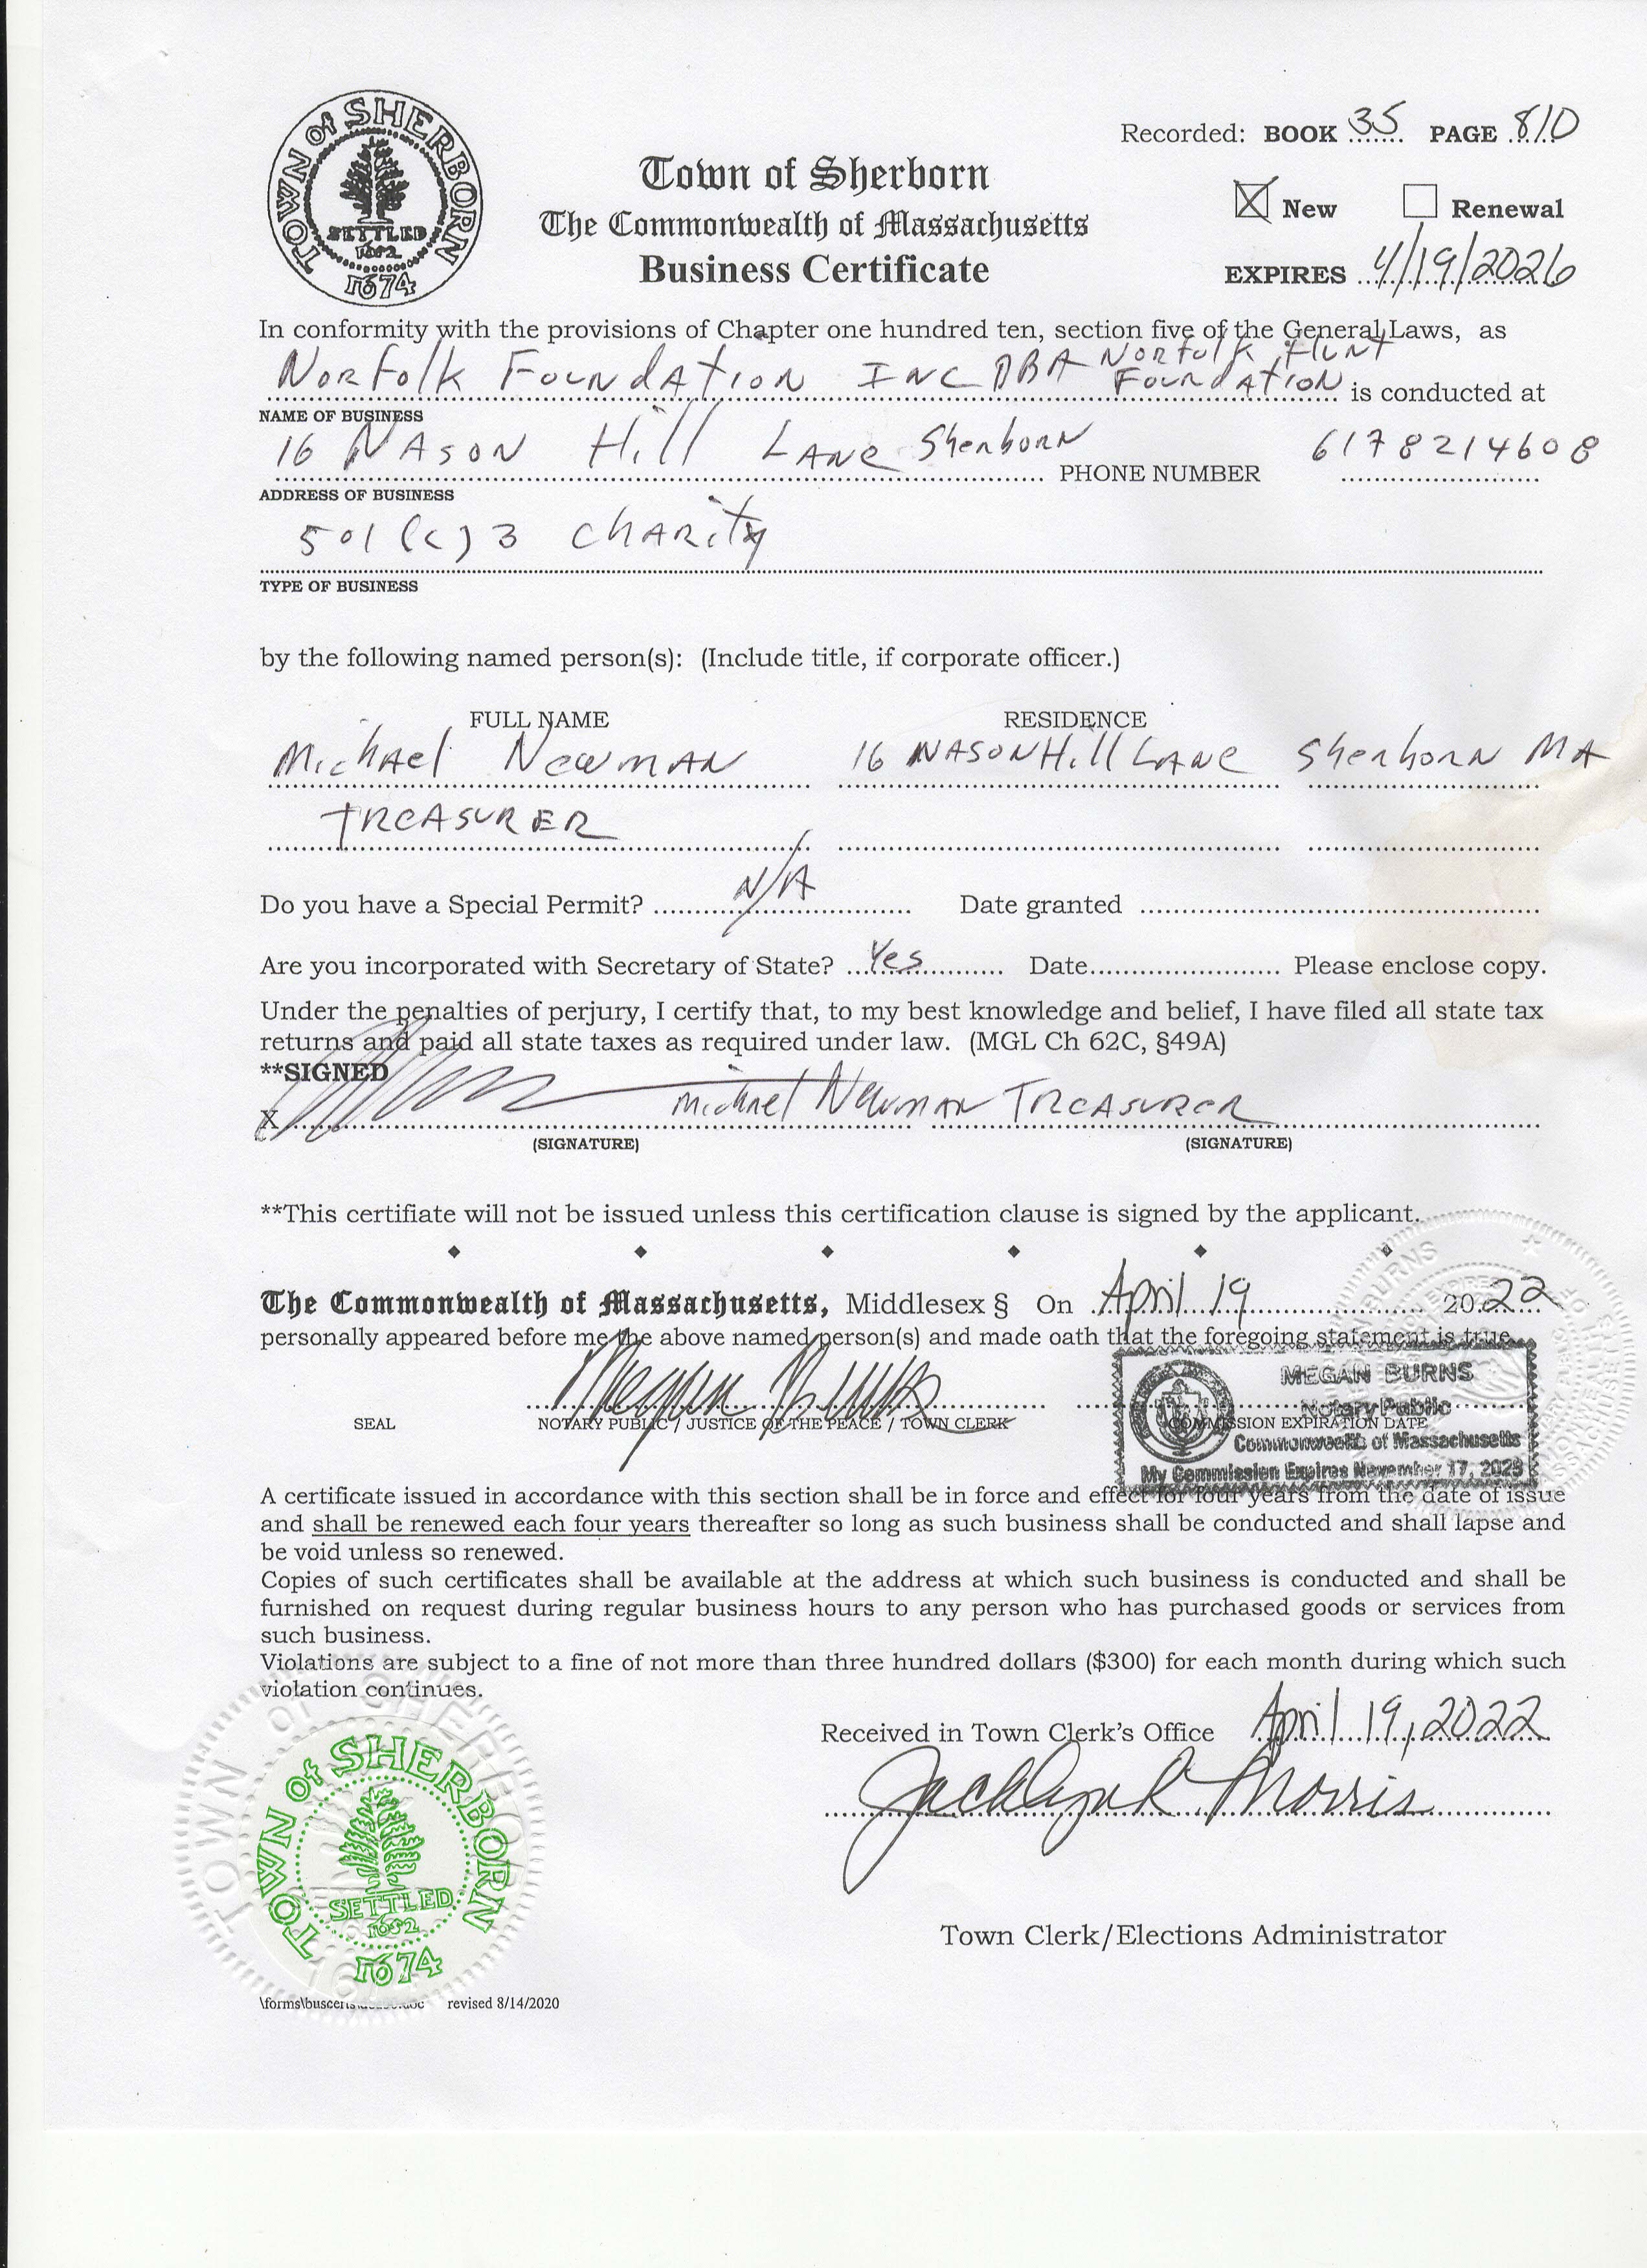 TOWN of SHERBORN
SETTLED
1652
1674
Recorded: BOOK 35 PAGE 810
Town of Sherborn
The Commonwealth of Massachusetts
Business Certificate
New Renewal
EXPIRES 4/19/2026
In conformity with the provisions of Chapter one hundred ten, section five of the General Laws, as
Norfolk Foundation INC DBA Norfolk Hunt Foundation is conducted at
NAME OF BUSINESS
16 Nason Hill Lane Sherborn PHONE NUMBER 6178214608
ADDRESS OF BUSINESS
501(c)3 Charity
TYPE OF BUSINESS
by the following named person(s): (Include title, if corporate officer.)
FULL NAME RESIDENCE
Michael Newman 16 Nason Hill Lane Sherborn MA
Treasurer
Do you have a Special Permit? N/A Date granted
Are you incorporated with Secretary of State? Yes Date Please enclose copy.
Under the penalties of perjury, I certify that, to my best knowledge and belief, I have filed all state tax
returns and paid all state taxes as required under law. (MGL Ch 62C, §49A)
**SIGNED
X Michael Newman Treasurer
(SIGNATURE) (SIGNATURE)
**This certifiate will not be issued unless this certification clause is signed by the applicant.
The Commonwealth of Massachusetts, Middlesex § On April 19 2022
personally appeared before me the above named person(s) and made oath that the foregoing statement is true
Megan Burns
SEAL NOTARY PUBLIC / JUSTICE OF THE PEACE / TOWN CLERK COMMISSION EXPIRATION DATE
MEGAN BURNS
Notary Public
Commonwealth of Massachusetts
My Commission Expires November 17, 2028
A certificate issued in accordance with this section shall be in force and effect for four years from the date of issue
and shall be renewed each four years thereafter so long as such business shall be conducted and shall lapse and
be void unless so renewed.
Copies of such certificates shall be available at the address at which such business is conducted and shall be
furnished on request during regular business hours to any person who has purchased goods or services from
such business.
Violations are subject to a fine of not more than three hundred dollars ($300) for each month during which such
violation continues.
Received in Town Clerk's Office April 19, 2022
Jacklyn R Morris
Town Clerk/Elections Administrator
TOWN of SHERBORN
SETTLED
1652
1674
revised 8/14/2020